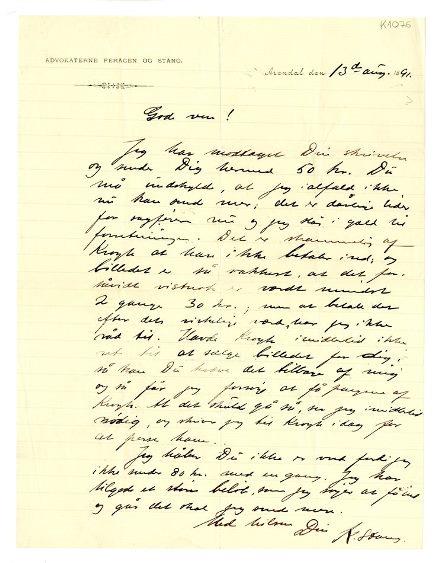 K1076
ADVOKATERNE PERAGEN OG STANG.
Arendal den 13de aug. 1891.
God ven!
Jeg har modtaget Din skrivelse
og sender Dig hermed 50 kr. Du
må undskylde, at jeg ialfald ikke
nu kan sende mer; det er dårlige tider
for sagfører nu og jeg står i gæld til
forretningen. Det er skammelig af
Krogh at han ikke betaler ind, og
billedet er så vakkert, at det for
såvidt vistnok er værdt mindst
2 gange 30 kr.; men at betale det
efter dets virkelige værd, har jeg ikke
råd til. Havde Krogh imidlertid ikke
ret til at sælge billedet for dig,
så kan Du det tilbage af mig
og så får jeg forsøge at få pengene af
Krogh. At det skuld gå så, ser jeg imidlertid
nødig, og skriver jeg til Krogh idag for
at presse ham.
Jeg håber Du ikke er vred fordi jeg
ikke sender 80 kr. med en gang. Jeg har
tilgode et større beløb, som jeg søger at få ind
og går det skal jeg sende mere.
Med hilsen Din K. Stang.